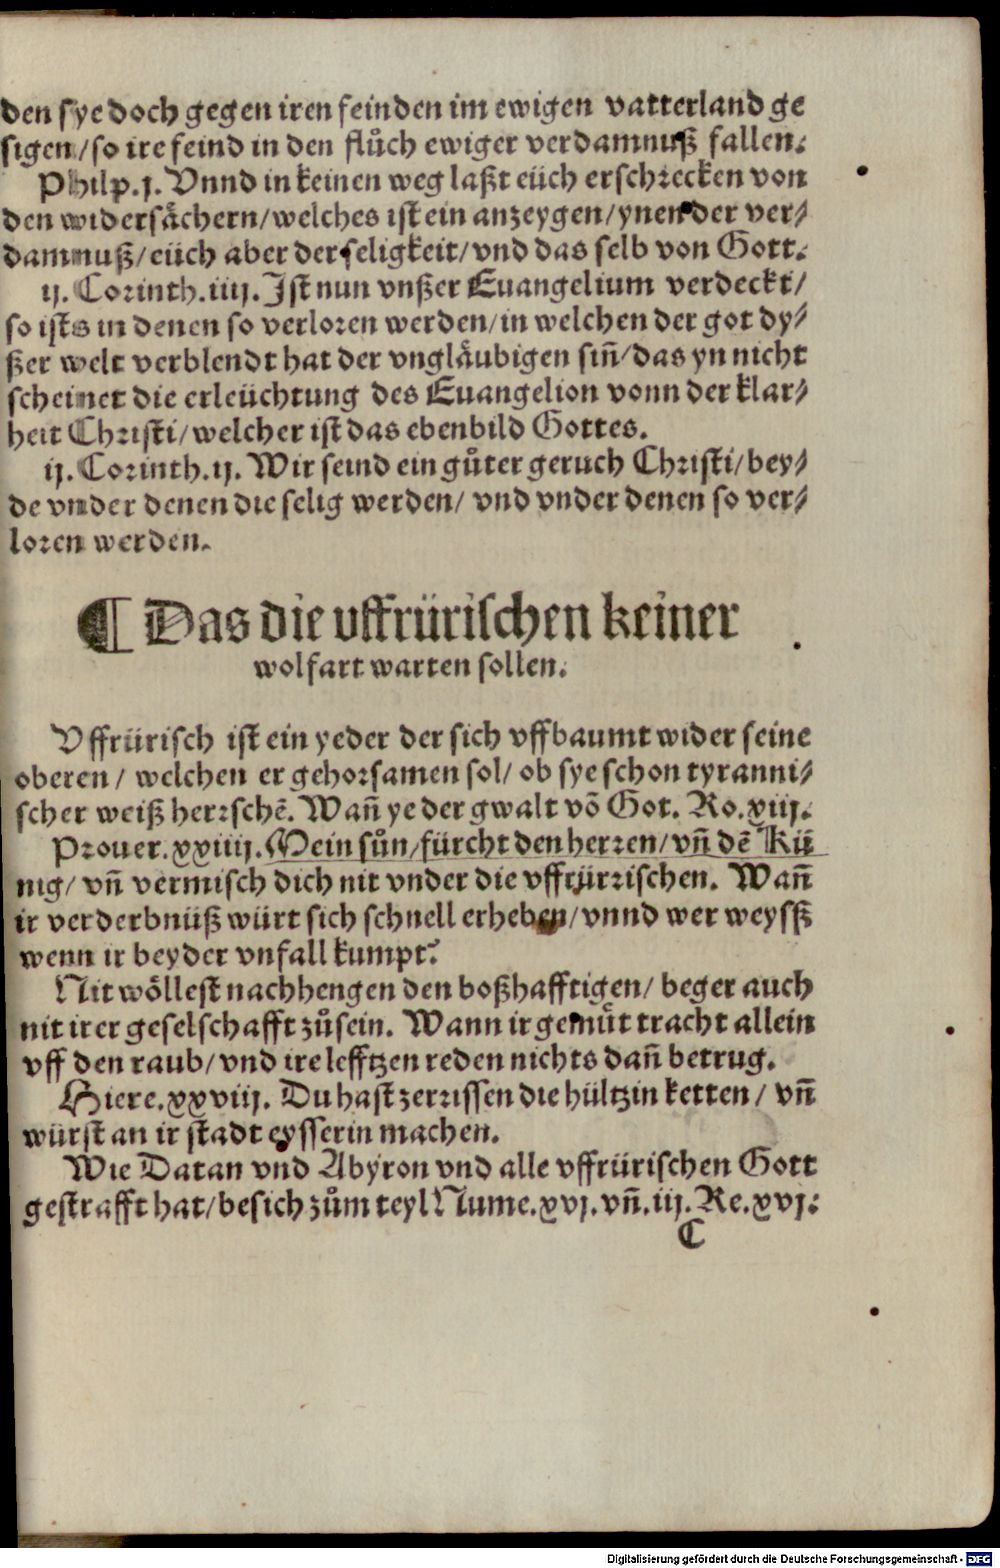 den sye doch gegen iren feinden im ewigen vatterland ge
sigen/so ire feind in den flůch ewiger verdamnuß fallen.
Philp.j. Vnnd in keinen weg laßt eüch erschrecken von
den widersåchern/welches ist ein anzeygen/ynen der ver/
damnuß/eüch aber der seligkeit/vnd das selb von Gott.
ij. Corinth.iiij. Ist nun vnßer Euangelium verdeckt/
so ists in denen so verloren werden/in welchen der got dy/
ßer welt verblendt hat der vnglåubigen siñ/das yn nicht
scheinet die erleüchtung des Euangelion vonn der klar/
heit Christi/welcher ist das ebenbild Gottes.
ij. Corinth.ij. Wir seind ein gůter geruch Christi/bey/
de vnder denen die selig werden/ vnd vnder denen so ver/
loren werden.
¶ Das die vffrürischen keiner
wolfart warten sollen.
Vffrürisch ist ein yeder der sich vffbaumt wider seine
oberen/ welchen er gehorsamen sol/ ob sye schon tyranni/
scher weiß herrschē. Wañ ye der gwalt vō Got. Ro.xiij.
Prouer.xxiiij. Mein sůn/fürcht den herren/vñ dē Kü
nig/ vñ vermisch dich nit vnder die vffrürrischen. Wañ
ir verderbnüß würt sich schnell erheben/vnnd wer weysß
wenn ir beyder vnfall kumpt?
Nit wöllest nachhengen den boßhafftigen/ beger auch
nit irer geselschafft zůsein. Wann ir gemüt tracht allein
vff den raub/ vnd ire lefftzen reden nichts dañ betrug.
Hiere.xxviij. Du hast zerrissen die hültzin ketten/ vñ
würst an ir stadt eysserin machen.
Wie Datan vnd Abyron vnd alle vffrürischen Gott
gestrafft hat/besich zům teyl Nume.xvj.vñ.iij.Re.xvj.
C
Digitalisierung gefördert durch die Deutsche Forschungsgemeinschaft - DFG